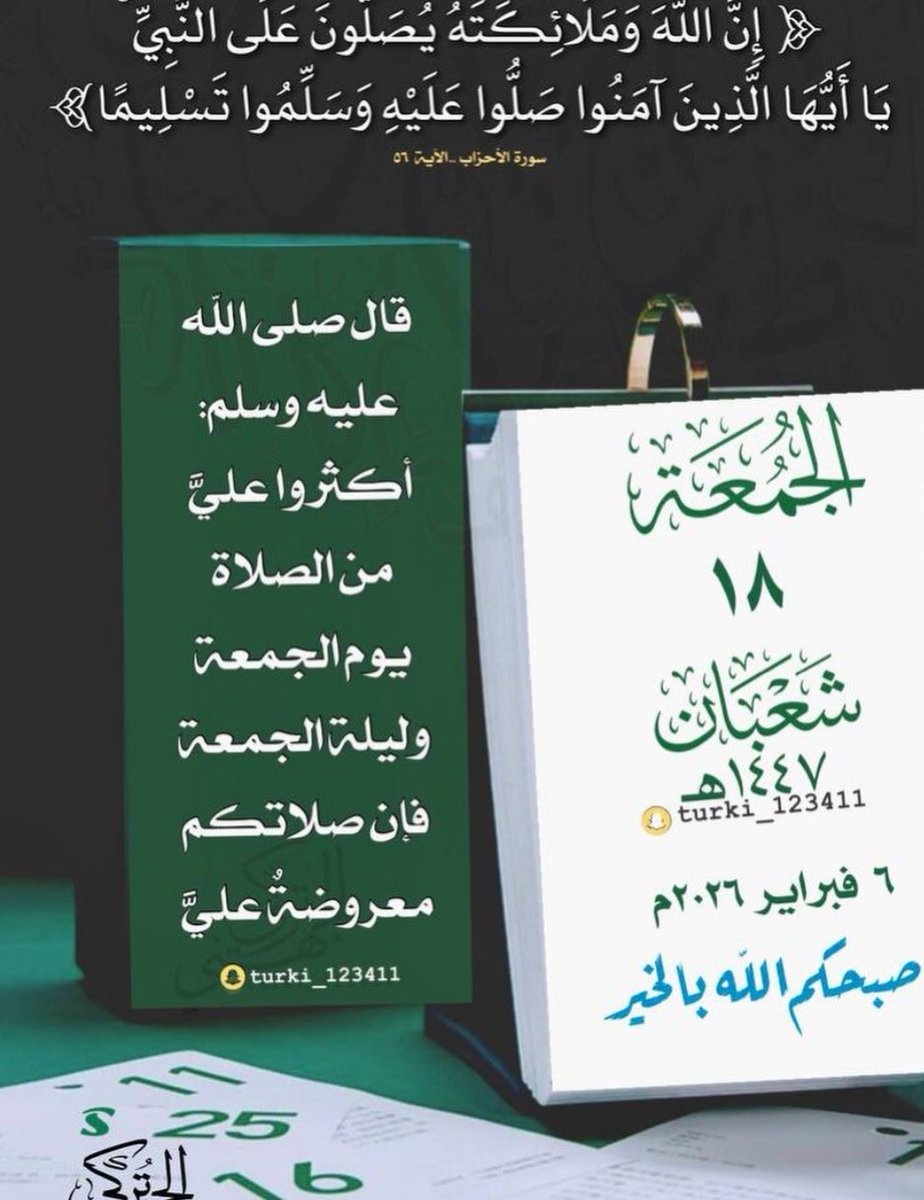 ﴿ إِنَّ اللَّهَ وَمَلَائِكَتَهُ يُصَلُّونَ عَلَى النَّبِيِّ
يَا أَيُّهَا الَّذِينَ آمَنُوا صَلُّوا عَلَيْهِ وَسَلِّمُوا تَسْلِيمًا ﴾
سورة الأحزاب ..الآية ٥٦
قال صلى الله
عليه وسلم:
أكثروا عليَّ
من الصلاة
يوم الجمعة
وليلة الجمعة
فإن صلاتكم
معروضةٌ عليَّ
turki_123411
الجُمُعَة
١٨
شَعْبَان
١٤٤٧هـ
turki_123411
٦ فبراير ٢٠٢٦م
صبحكم الله بالخير
11
25
16